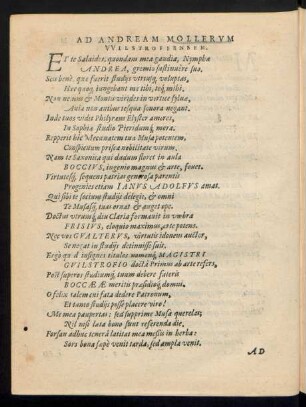 AD ANDREAM MÖLLERVM
VVILSTROFFENSEM.
ET te Salaidæ, quondam mea gaudia, Nymphæ
ANDREA, gremio sustinuêre suo.
Scis bene, quæ fuerit studijs utriusq; voluptas,
Hec quoq; iungebant nos tibi, teq; mihi.
Non nemus & Montis virides in vertice sylvæ,
Aula nec antibus
Inde tuos vidit Philyram Elyster amores,
In Sophiæ studio Pieridumq; mera.
Repperit hîc Mecœnatem tua Musa patentem,
Conspicuum prisca nobilitate virum.
Nam te Saxonica qui dudum floret in aula
BOCCIVS, ingenio magnus & arte, fovet.
Virtutesq; sequens patrias generosa parentis
Progenies etiam IANVS ADOLFVS amat.
Qui sibi te socium studijs delegit, & omni
Te Musasq; tuas ornat & auget ope.
Doctus utrumq; diu Clariâ formavit in vmbra
FRISIVS, eloquio maximus, arte potens.
Nec vos GVALTERVS, virtutis idoneus auctor,
Semotas in studijs detinuisse fuit.
Ergò quòd insignes titulos nomenq; MAGISTRI
GVILSTROFIO docta Primus ab arte refers,
Post superos studiumq; tuum debere fateris
BOCCÆÆ meritis præsidioq; domui.
O felix tales cui fata dedere Patronum,
Et tanto studijs posse placere viro!
Me mea paupertas: sed supprime Musa querelas;
Nil nisi læta bono sunt referenda die.
Forsan adhuc tenerâ latitat mea messis in herba:
Sors bona sæpè venit tarda, sed ampla venit.
AD